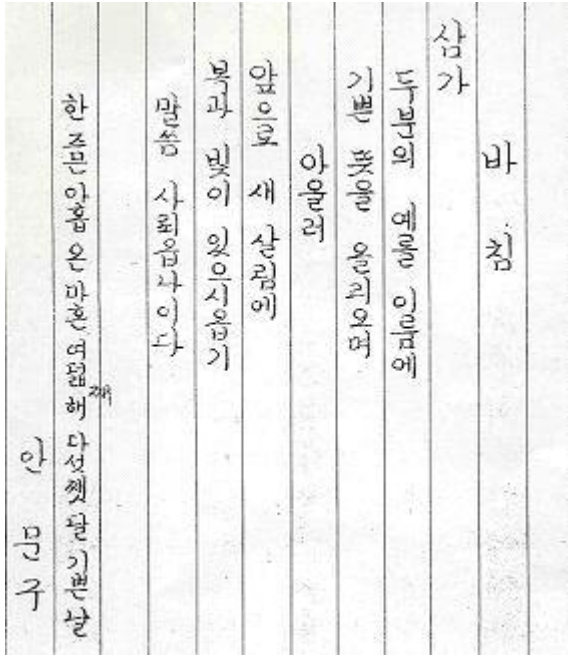 바 침
삼가
두분의 예를 이룸에
기쁜 뜻을 올리오며
아울러
앞으로 새 살림에
복과 빛이 있으시옵기
말씀 사뢰옵나이다
한 즈믄 아홉 온 마흔 여덟 해 다섯쨋 달 기쁜 날
안 문 구